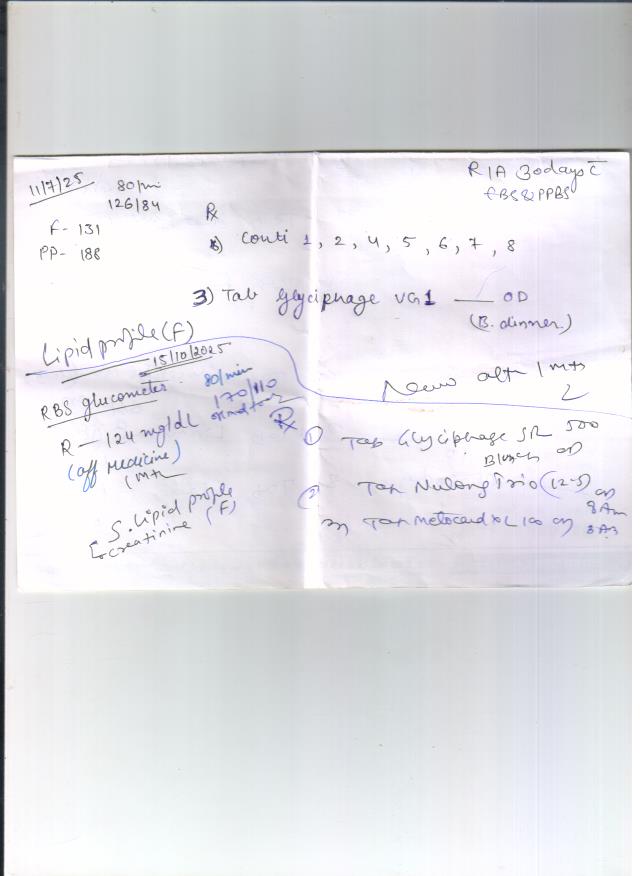 11/7/25
80/min
126/84
F- 131
PP- 188
R/A 30days c̄
FBS & PPBS
Rx
Conti 1, 2, 4, 5, 6, 7, 8
3) Tab Glyciphage VG1 — OD
(B. dinner)
Lipid profile (F)
15/10/2025
RBS glucometer
80/min
170/110
R — 124 mg/dL
(off medicine)
1 mth
S. Lipid profile
creatinine (F)
Review aft 1 mth
Rx
1) Tab Glyciphage SR 500
OD
2) Tab Nulong Trio (12.5) OD
8 Am
3) Tab Metocard XL 100 OD